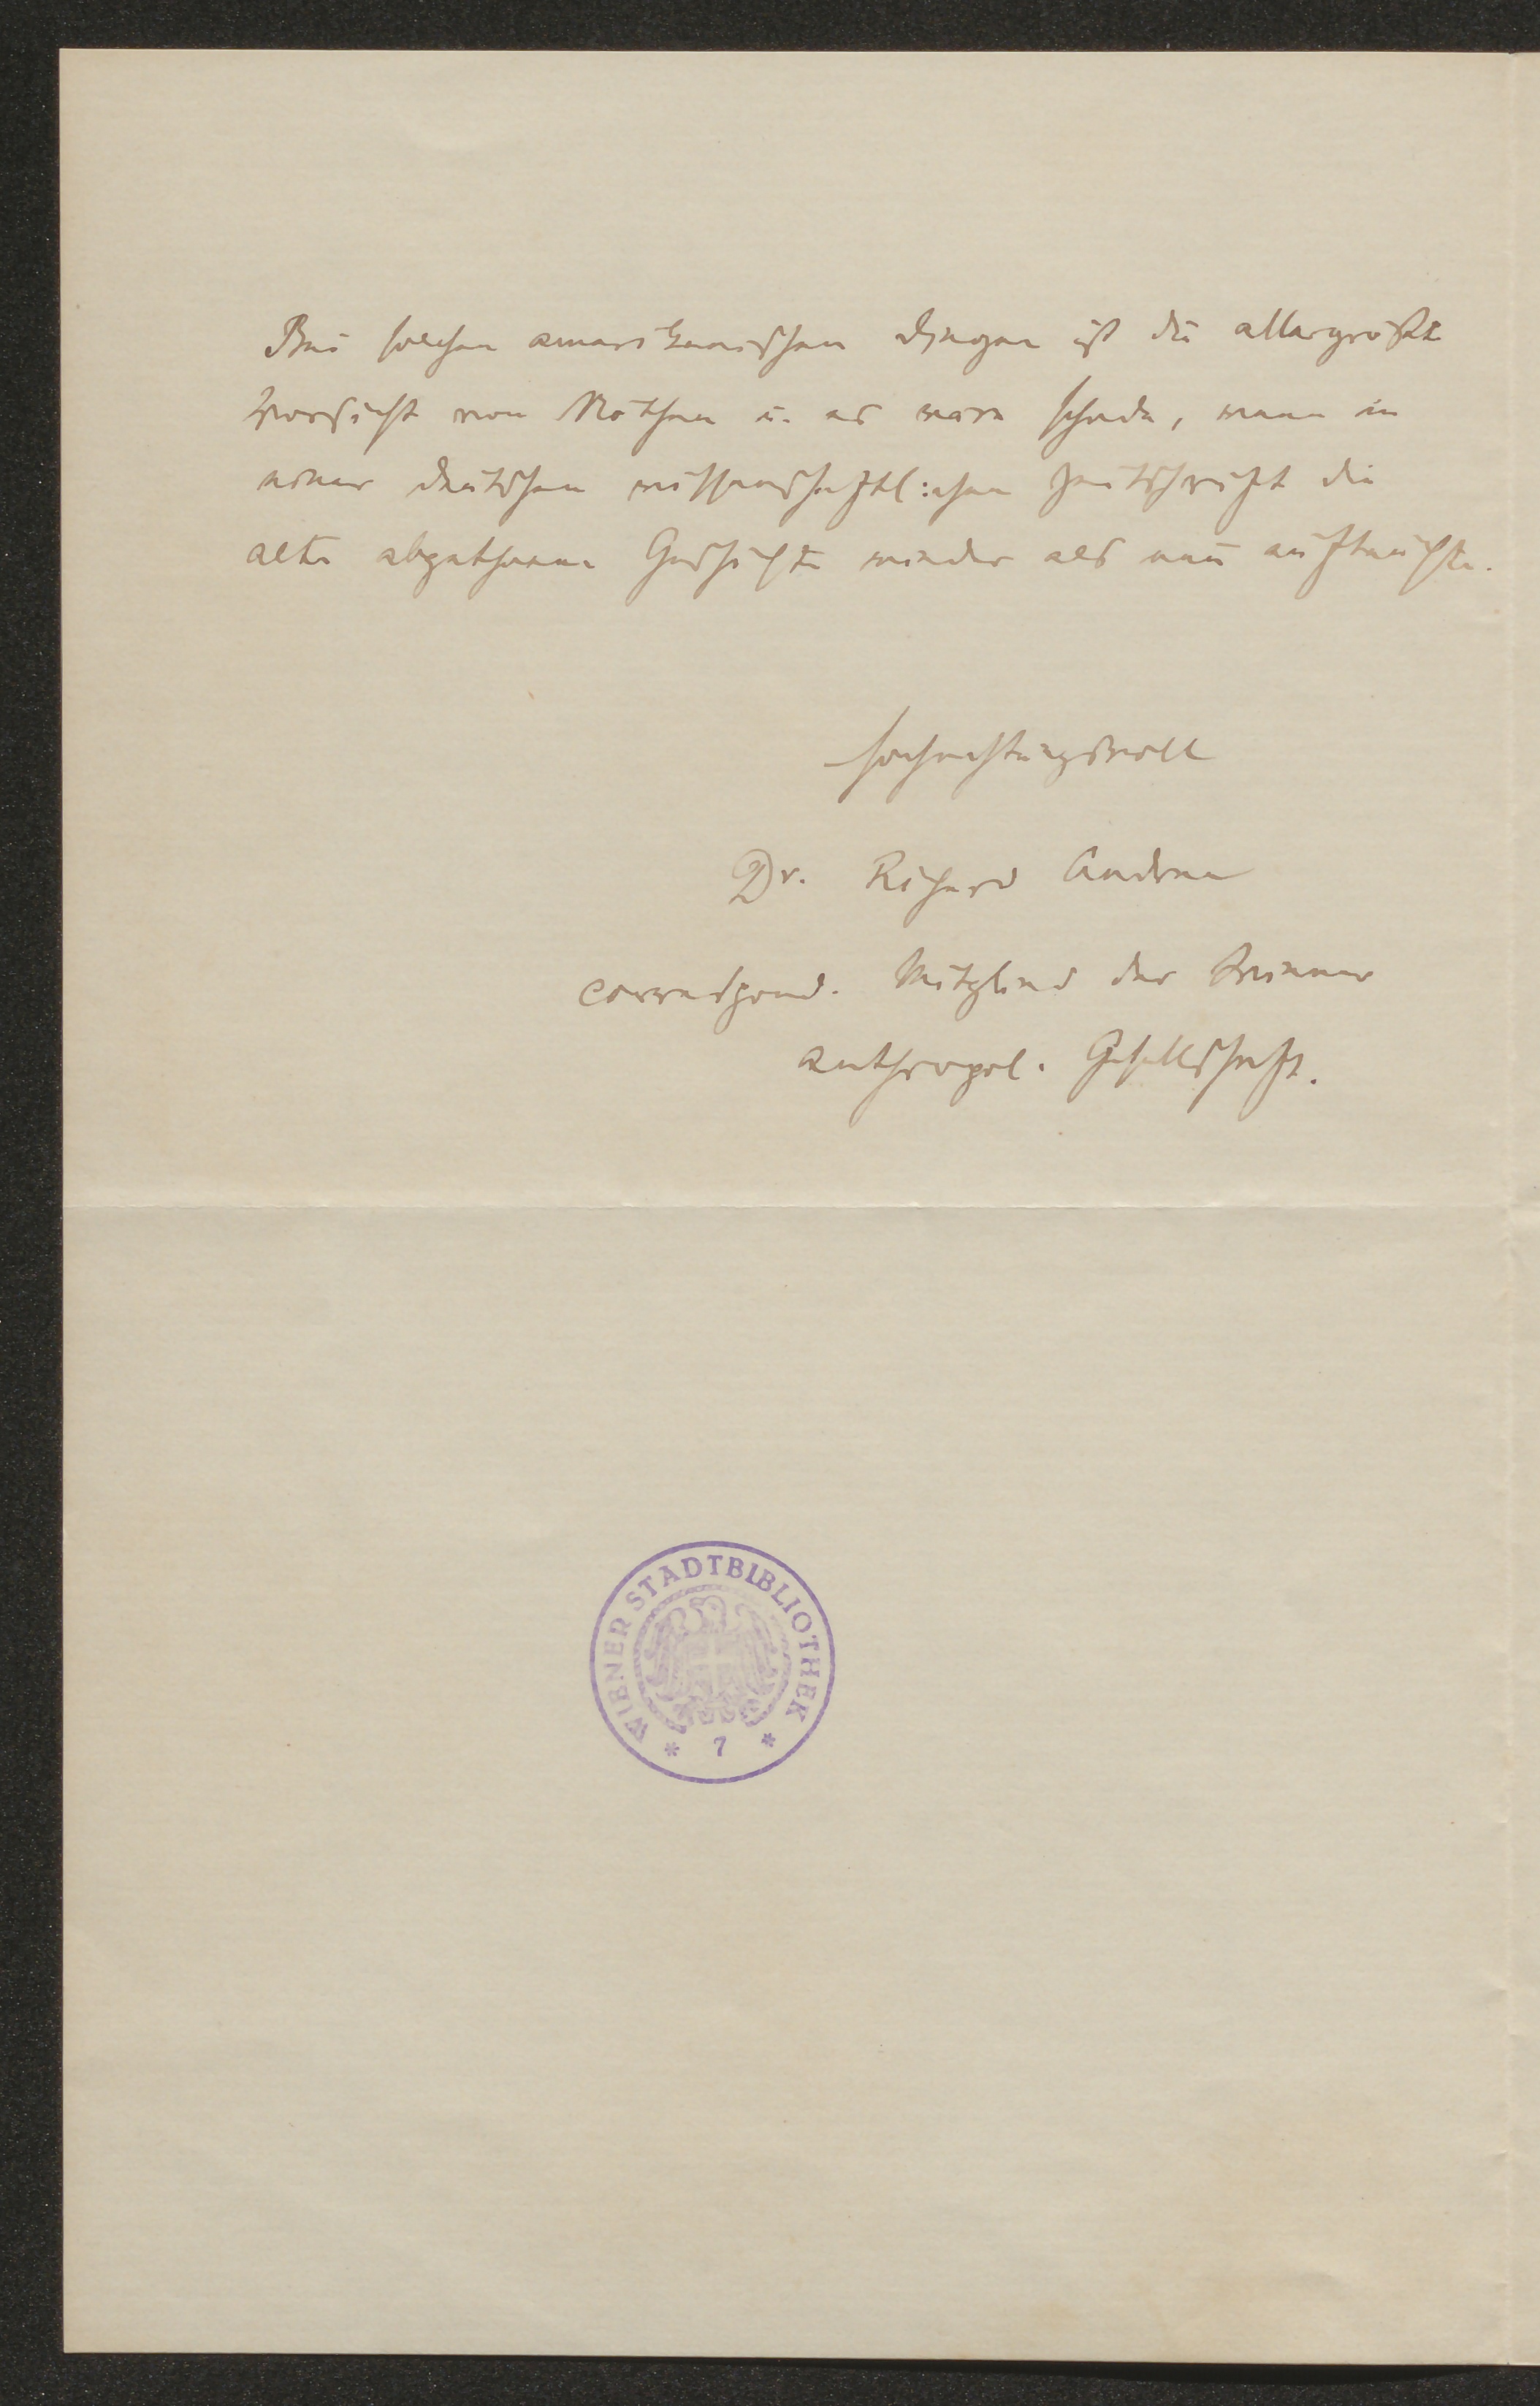 Bei solchen amerikanischen Dingen ist die allergrößte
Vorsicht von Nöthen u. es wäre schade, wenn in
einer deutschen wissenschaftl:chen Zeitschrift die
alte abgethane Geschichte wieder als neu auftauchte.
Hochachtungsvoll
Dr. Richard Andree
correspond. Mitglied der Wiener
anthropol. Gesellschaft.
WIENER STADTBIBLIOTHEK
* 7 *